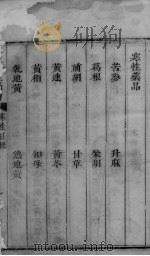 寒性藥品
苦參 升麻
葛根 柴胡
前胡 甘草
黃連 黃芩
黃栢 知母
乾地黃